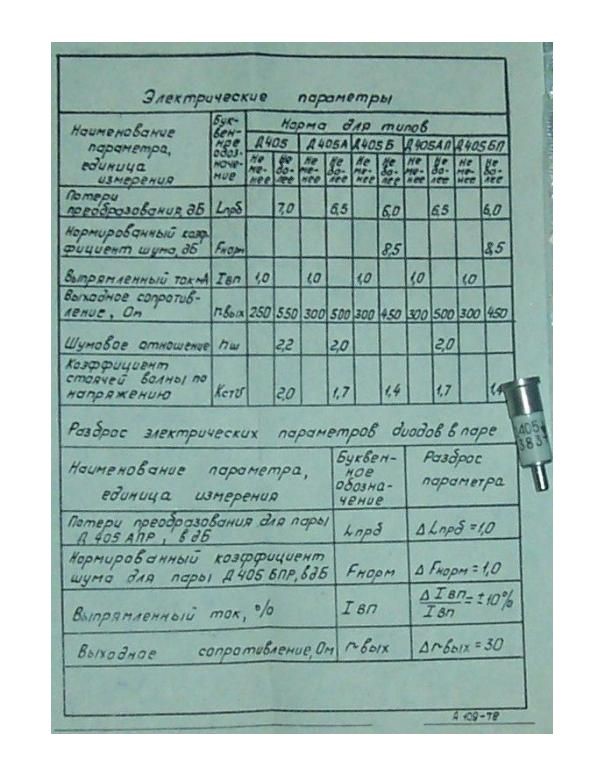 Электрические параметры
Наименование параметра, единица измерения | Буквенное обозначение | Норма для типов
Д405 | Д405А | Д405Б | Д405АП | Д405БП
Не менее | Не более | Не менее | Не более | Не менее | Не более | Не менее | Не более | Не менее | Не более
Потери преобразования, дБ | Lпрб | 7,0 | 6,5 | 6,0 | 6,5 | 6,0
Нормированный коэффициент шума, дБ | Fнорм | 8,5 | 8,5
Выпрямленный ток мА | Iвп | 1,0 | 1,0 | 1,0 | 1,0 | 1,0
Выходное сопротивление, Ом | rвых | 250 | 550 | 300 | 500 | 300 | 450 | 300 | 500 | 300 | 450
Шумовое отношение | nш | 2,2 | 2,0 | 2,0
Коэффициент стоячей волны по напряжению | КстU | 2,0 | 1,7 | 1,4 | 1,7 | 1,4
Разброс электрических параметров диодов в паре
Наименование параметра, единица измерения | Буквенное обозначение | Разброс параметра
Потери преобразования для пары Д405 АПР, в дБ | Lпрб | Δ Lпрб = 1,0
Нормированный коэффициент шума для пары Д405 БПР, в дБ | Fнорм | Δ Fнорм = 1,0
Выпрямленный ток, % | I вп | Δ I вп / I вп = ± 10%
Выходное сопротивление, Ом | r вых | Δ r вых = 30
А 109-78
Д405
383